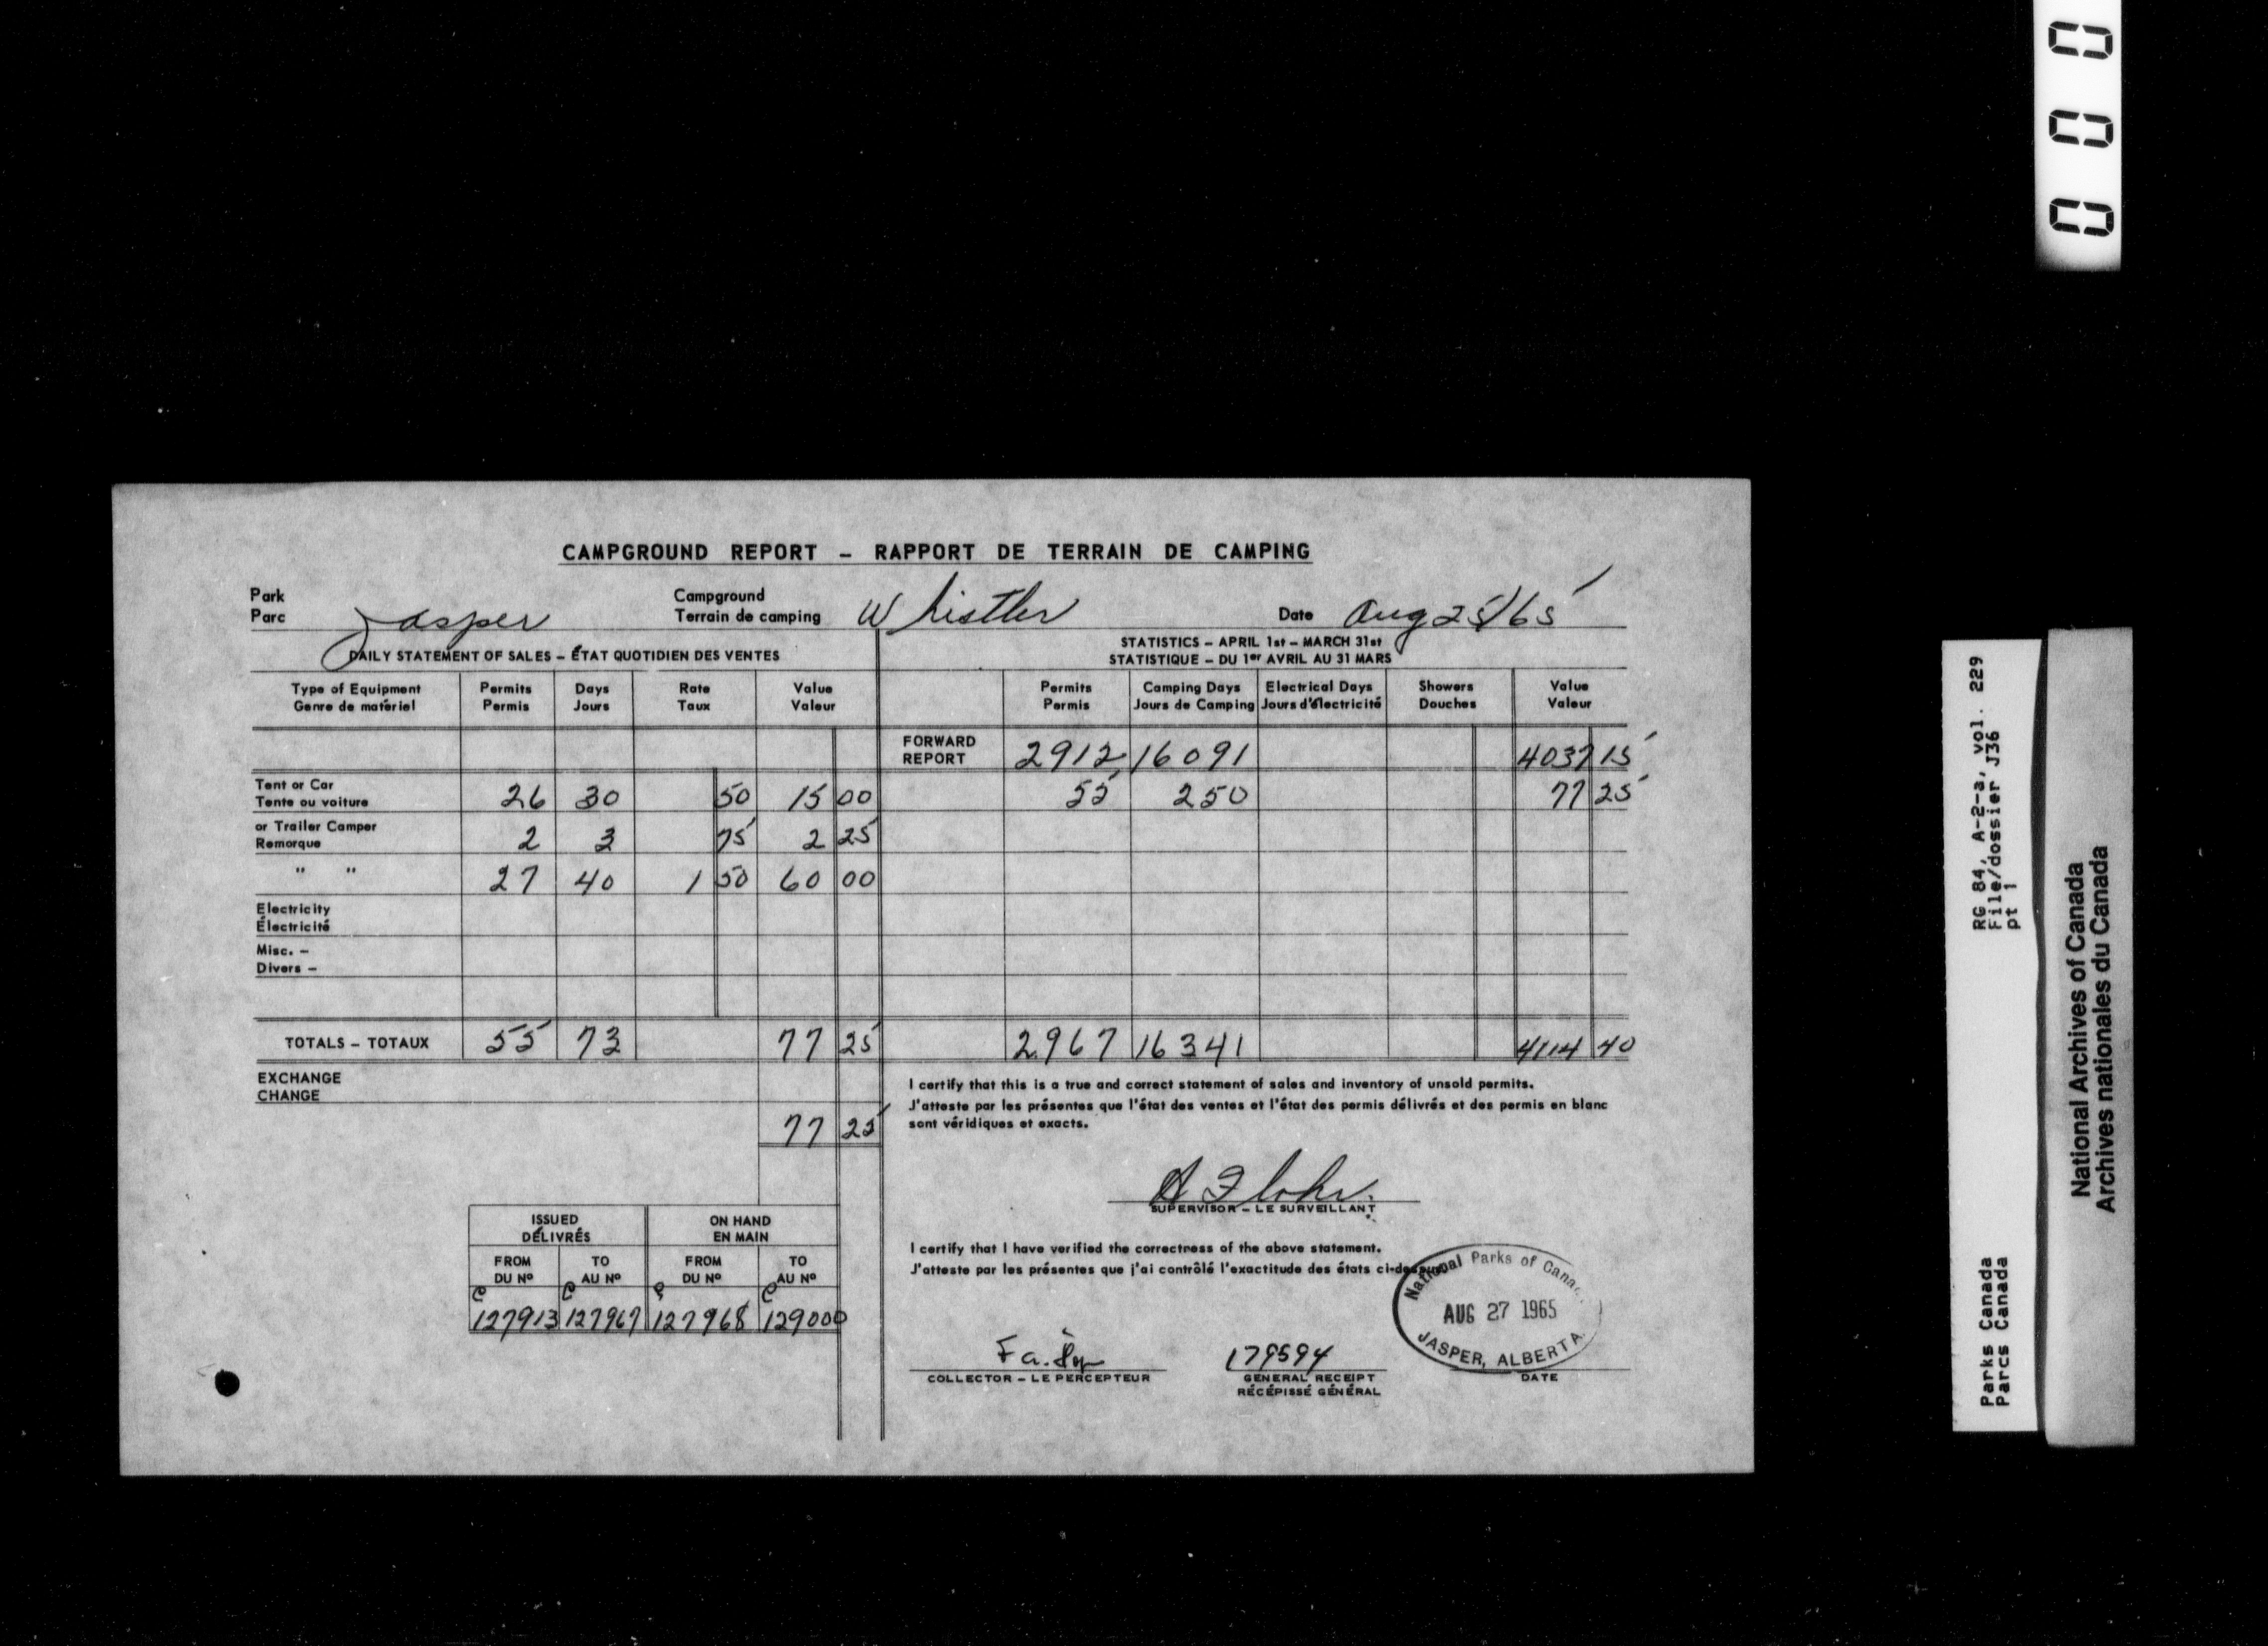 CAMPGROUND REPORT – RAPPORT DE TERRAIN DE CAMPING
Park
Parc Jasper
Campground
Terrain de camping Whistler
Date Aug 25/65
DAILY STATEMENT OF SALES – ÉTAT QUOTIDIEN DES VENTES
STATISTICS – APRIL 1st – MARCH 31st
STATISTIQUE – DU 1er AVRIL AU 31 MARS
Type of Equipment Permits Days Rate Value
Genre de matériel Permis Jours Taux Valeur
Permits Camping Days Electrical Days Showers Value
Permis Jours de Camping Jours d'électricité Douches Valeur
FORWARD
REPORT 2912 16091 4037 15
Tent or Car
Tente ou voiture 26 30 50 15 00 55 250 77 25
or Trailer Camper
Remorque 2 3 75 2 25
" " 27 40 1 50 60 00
Electricity
Électricité
Misc. –
Divers –
TOTALS – TOTAUX 55 73 77 25 2967 16341 4114 40
EXCHANGE
CHANGE
77 25
I certify that this is a true and correct statement of sales and inventory of unsold permits.
J'atteste par les présentes que l'état des ventes et l'état des permis délivrés et des permis en blanc
sont véridiques et exacts.
SUPERVISOR – LE SURVEILLANT
ISSUED ON HAND
DÉLIVRÉS EN MAIN
FROM TO FROM TO
DU Nº AU Nº DU Nº AU Nº
C C C C
127913 127967 127968 129000
I certify that I have verified the correctness of the above statement.
J'atteste par les présentes que j'ai contrôlé l'exactitude des états
National Parks of Canada
AUG 27 1965
JASPER, ALBERTA
179594
COLLECTOR – LE PERCEPTEUR
GENERAL RECEIPT
RÉCÉPISSÉ GÉNÉRAL
DATE
000
RG 84, A-2-a, vol. 229
File/dossier J36
pt 1
Parks Canada
Parcs Canada
National Archives of Canada
Archives nationales du Canada